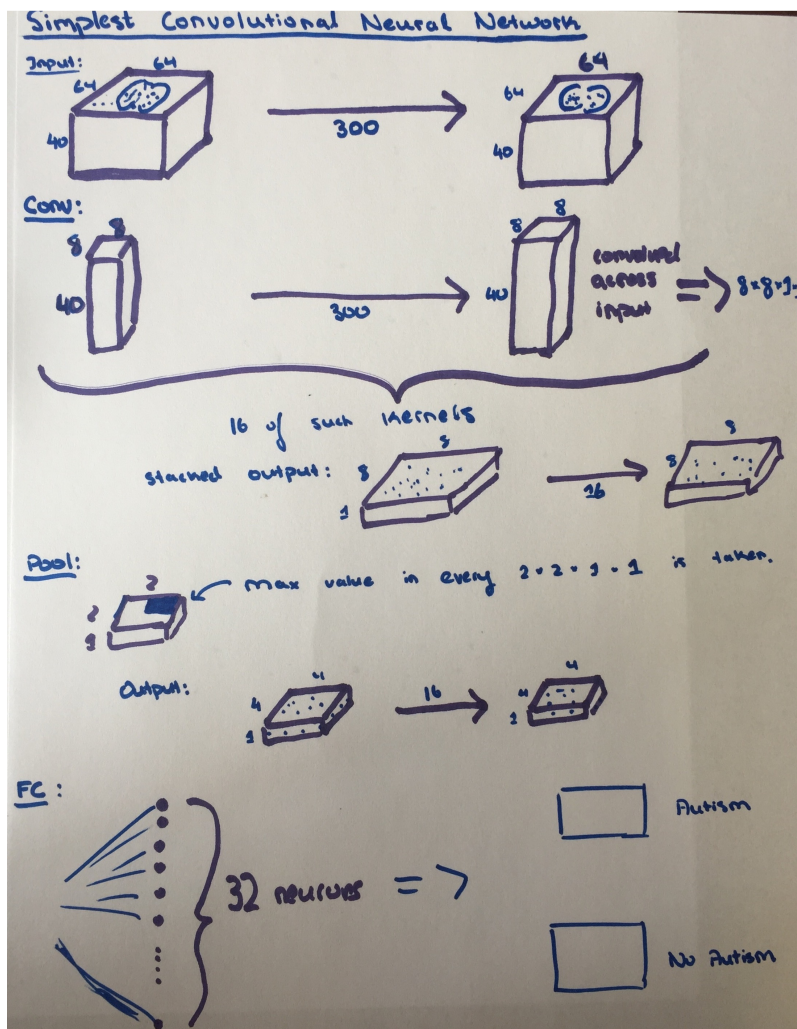 Simplest Convolutional Neural Network
Input:
64 64
40
300
64
64
40
Conv:
8 8
40
300
8 8
40
convolved
across
input
=> 8×8×1
16 of such kernels
stacked output:
8 8
1
16
8 8
Pool:
2
2
1
max value in every 2×2×1×1 is taken.
Output:
4 4
1
16
4 4
1
FC:
32 neurons =>
Autism
No Autism